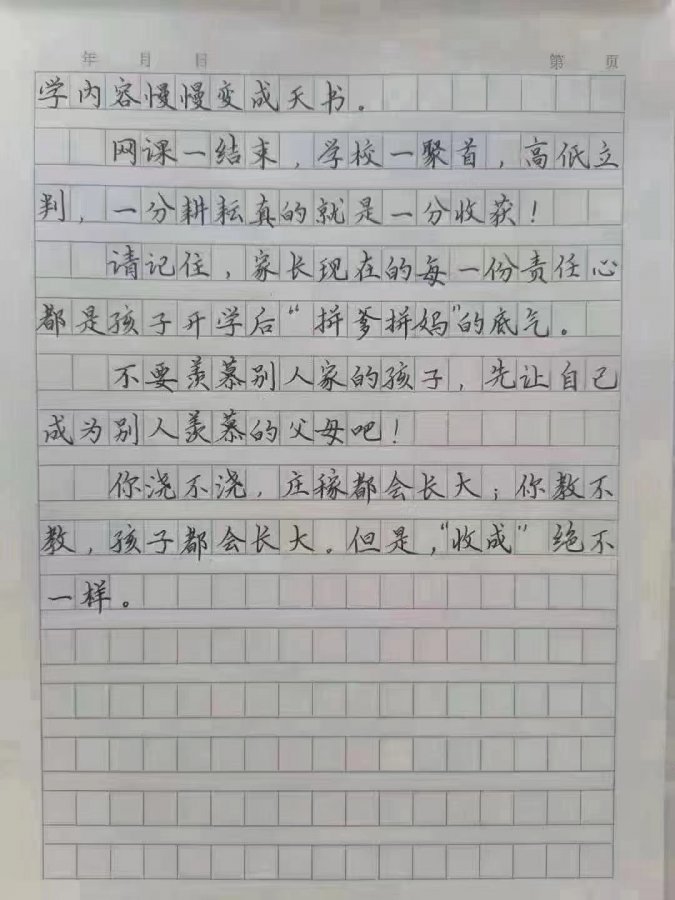 年 月 日 第 页
学内容慢慢变成天书。
网课一结束，学校一聚首，高低立
判，一分耕耘真的就是一分收获！
请记住，家长现在的每一份责任心
都是孩子开学后“拼爹拼妈”的底气。
不要羡慕别人家的孩子，先让自己
成为别人羡慕的父母吧！
你浇不浇，庄稼都会长大；你教不
教，孩子都会长大。但是，“收成”绝不
一样。